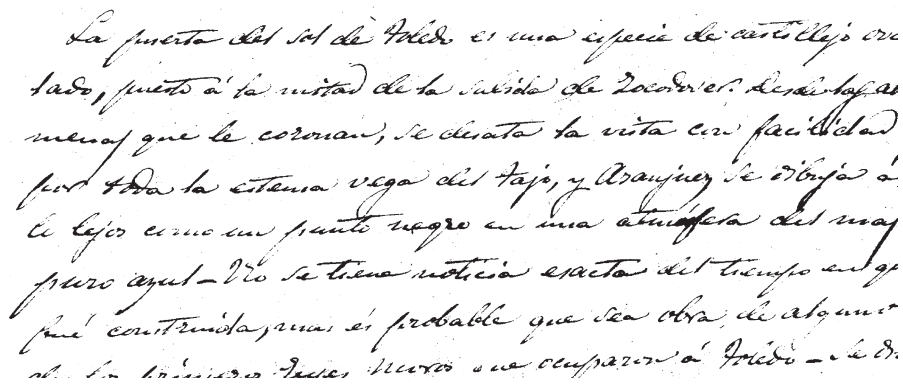 La puerta del sol de Toledo es una especie de castillejo ova
lado, puesto á la mitad de la subida de Zocodover. Desde las al
menas que le coronan, se desata la vista con facilidad
por toda la estensa vega del Tajo, y Aranjuez se dibuja á
lo lejos como un punto negro en una atmósfera del mas
puro azul – No se tiene noticia esacta del tiempo en q
fué construida, mas es probable que sea obra de alguno
de los primeros Reyes Moros que ocuparon á Toledo – Se